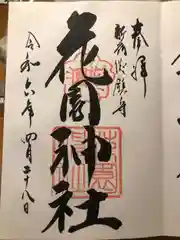 奉拝
新宿総鎮守
花園神社
令和六年四月二十八日